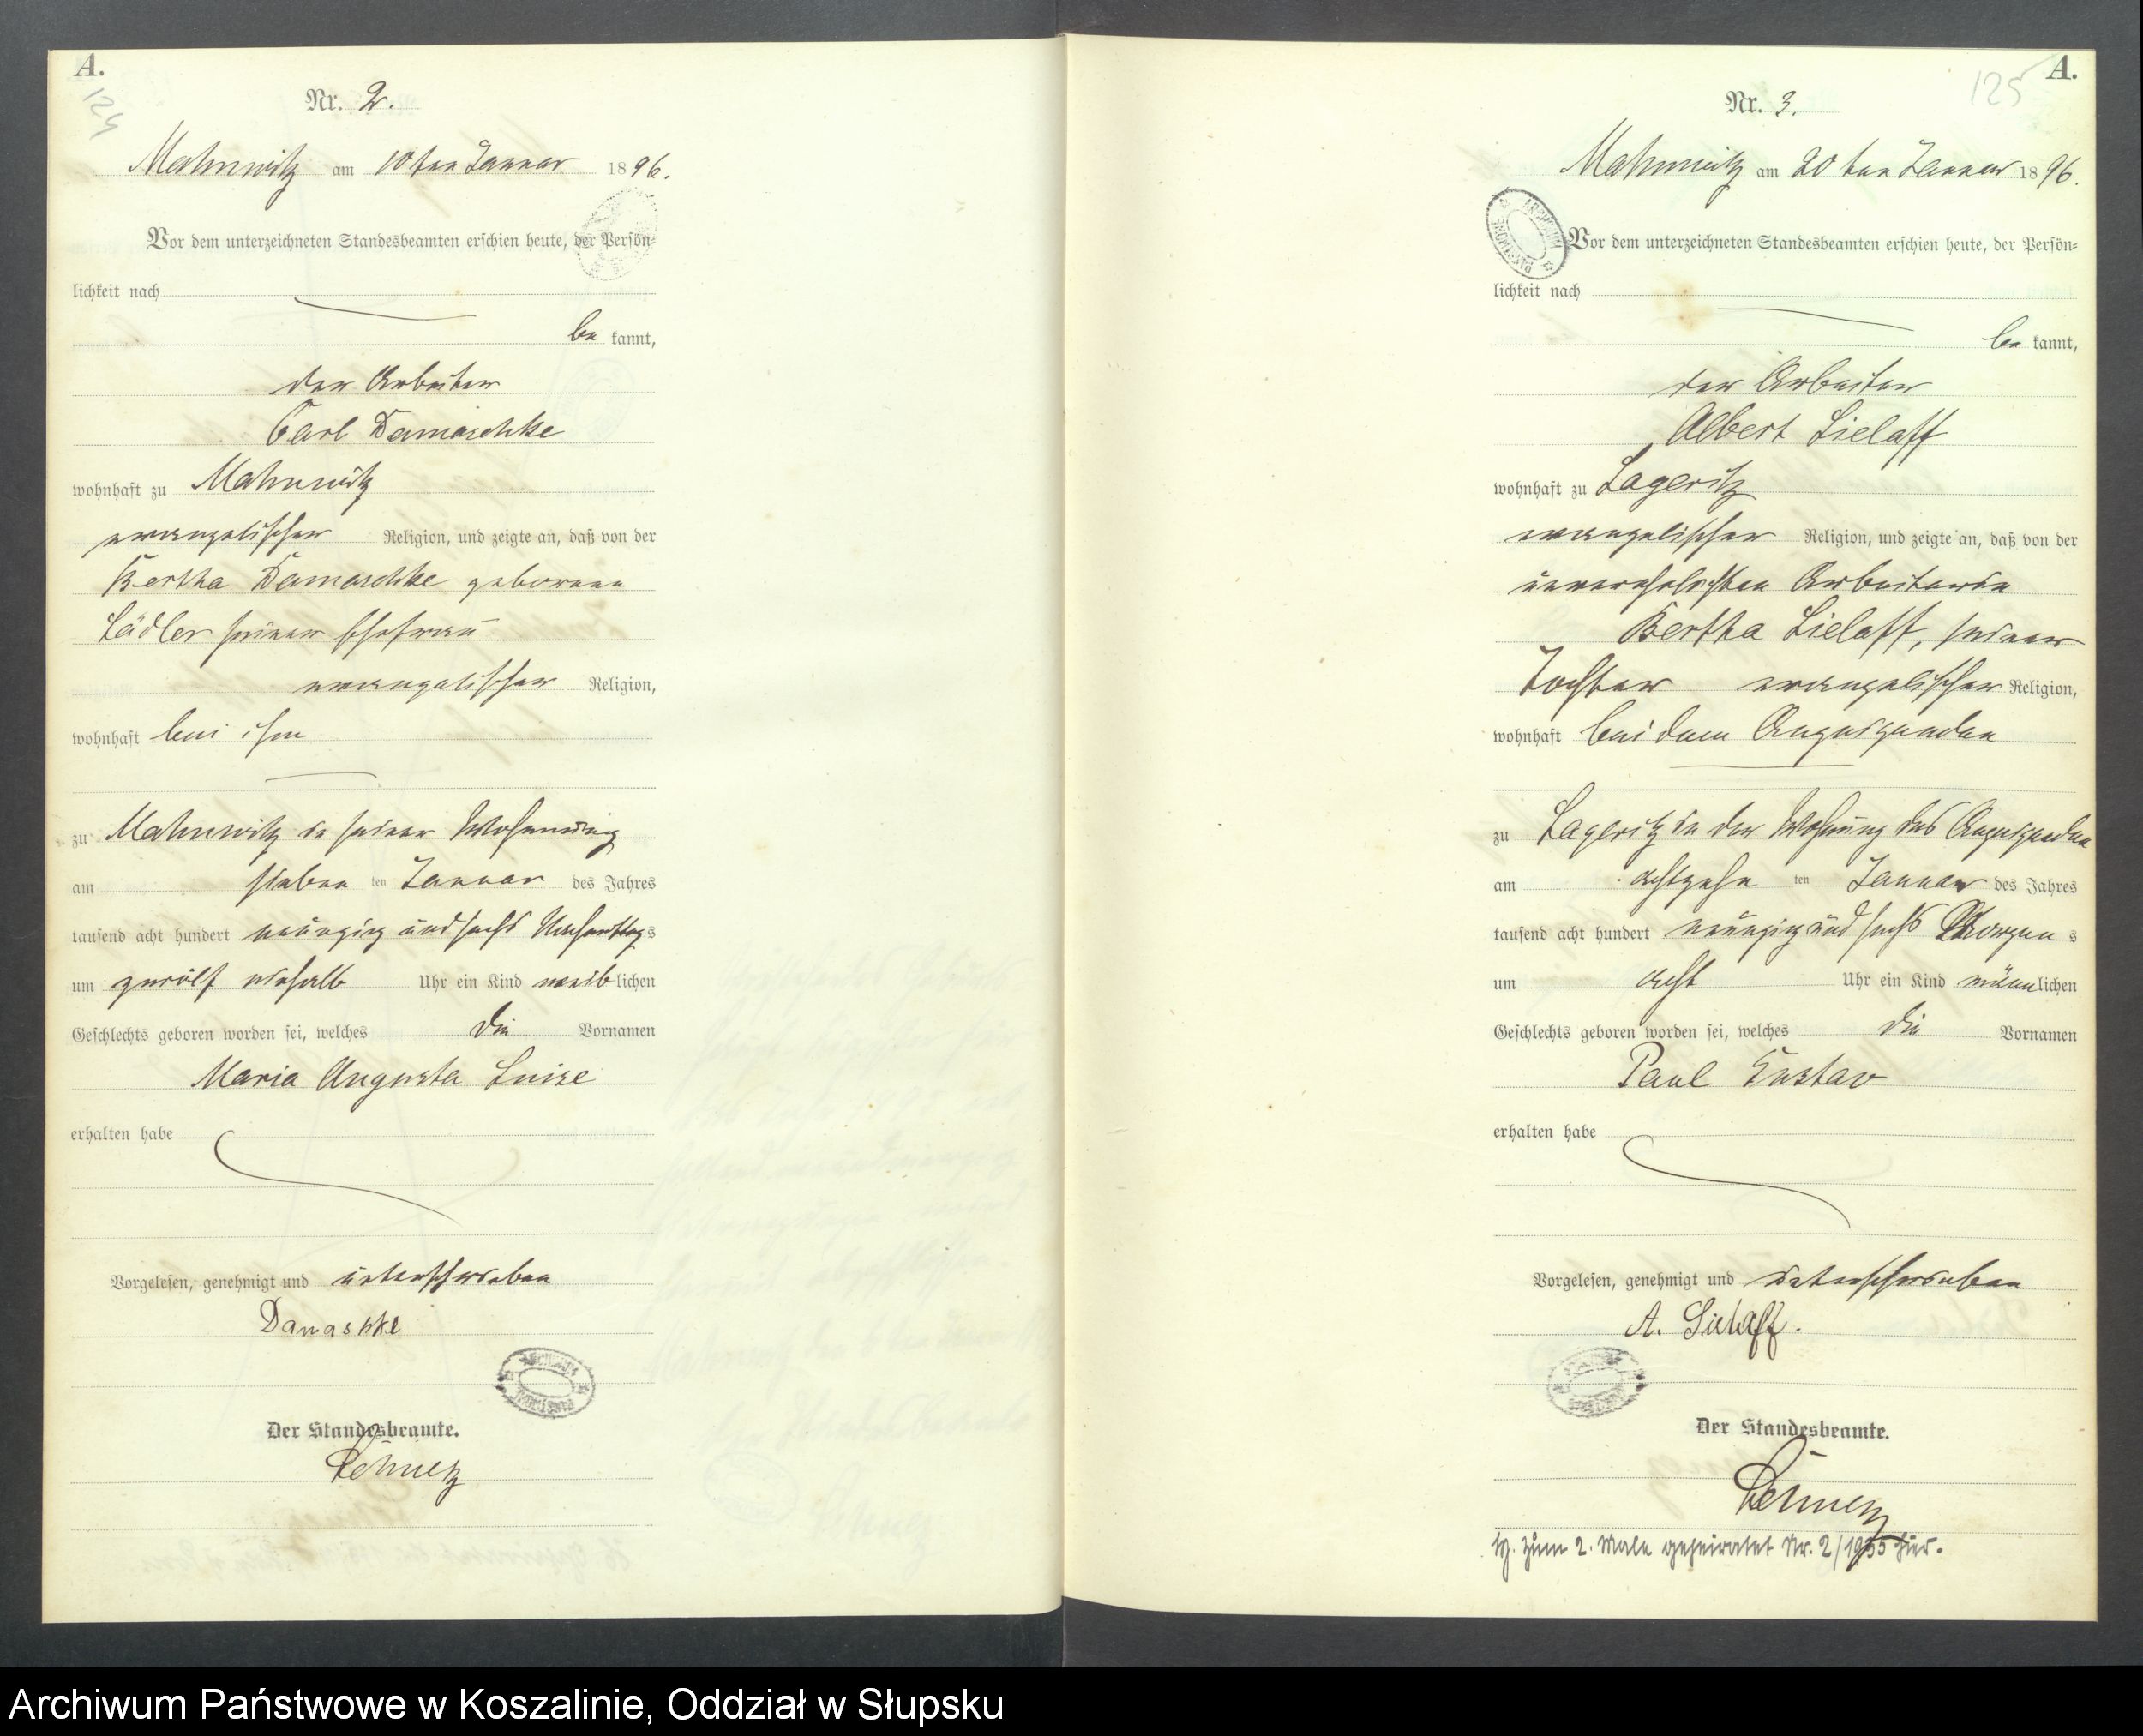 A.
124
Nr. 2.
Mahnwitz am 10ten Januar 1896.
Vor dem unterzeichneten Standesbeamten erschien heute, der Persön-
lichkeit nach
be kannt,
der Arbeiter
Carl Damaschke
wohnhaft zu Mahnwitz
evangelischer Religion, und zeigte an, daß von der
Bertha Damaschke geborene
Lädler seiner Ehefrau
evangelischer Religion,
wohnhaft bei ihm
zu Mahnwitz in seiner Wohnung
am sieben ten Januar des Jahres
tausend acht hundert neunzig und sechs Nachmittags
um zwölf einhalb Uhr ein Kind weiblichen
Geschlechts geboren worden sei, welches die Vornamen
Maria Augusta Luise
erhalten habe
Vorgelesen, genehmigt und unterschrieben
Damaskke
Der Standesbeamte.
A.
125
Nr. 3.
Mahnwitz am 20ten Januar 1896.
Vor dem unterzeichneten Standesbeamten erschien heute, der Persön-
lichkeit nach
be kannt,
der Arbeiter
Albert Lielaff
wohnhaft zu Lageritz
evangelischer Religion, und zeigte an, daß von der
unverehelichten Arbeiterin
Bertha Lielaff, seiner
Tochter evangelischer Religion,
wohnhaft bei dem Anzeigenden
zu Lageritz in der Wohnung des Anzeigenden
am achtzehn ten Januar des Jahres
tausend acht hundert neunzig und sechs Morgens
um acht Uhr ein Kind männlichen
Geschlechts geboren worden sei, welches die Vornamen
Paul Gustav
erhalten habe
Vorgelesen, genehmigt und unterschrieben
A. Lielaff.
Der Standesbeamte.
zum 2. Male geheiratet Nr. 2/1935 hier.
Archiwum Państwowe w Koszalinie, Oddział w Słupsku